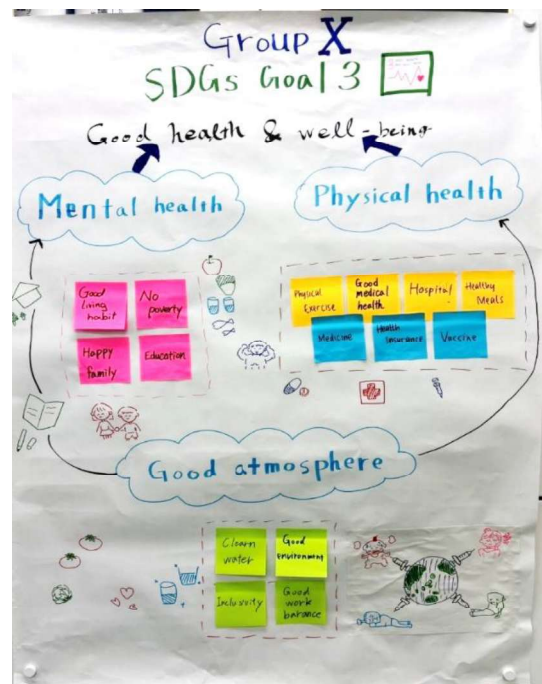 Group X
SDGs Goal 3
Good health & well-being
Mental health
Physical health
Good
living
habit
No
poverty
Happy
family
Education
Physical
Exercise
Good
medical
health
Hospital
Healthy
Meals
Medicine
Health
Insurance
Vaccine
Good atmosphere
Clearn
water
Good
environment
Inclusivity
Good
work
barance